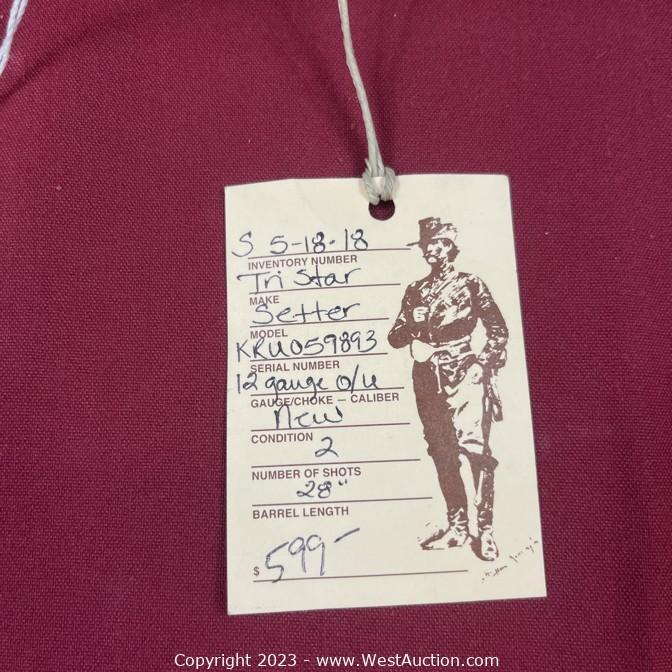 S 5-18-18
INVENTORY NUMBER
Tri Star
MAKE
Setter
MODEL
KRU059893
SERIAL NUMBER
12 gauge O/U
GAUGE/CHOKE – CALIBER
New
CONDITION
2
NUMBER OF SHOTS
28"
BARREL LENGTH
$ 599-
Copyright 2023 - www.WestAuction.com